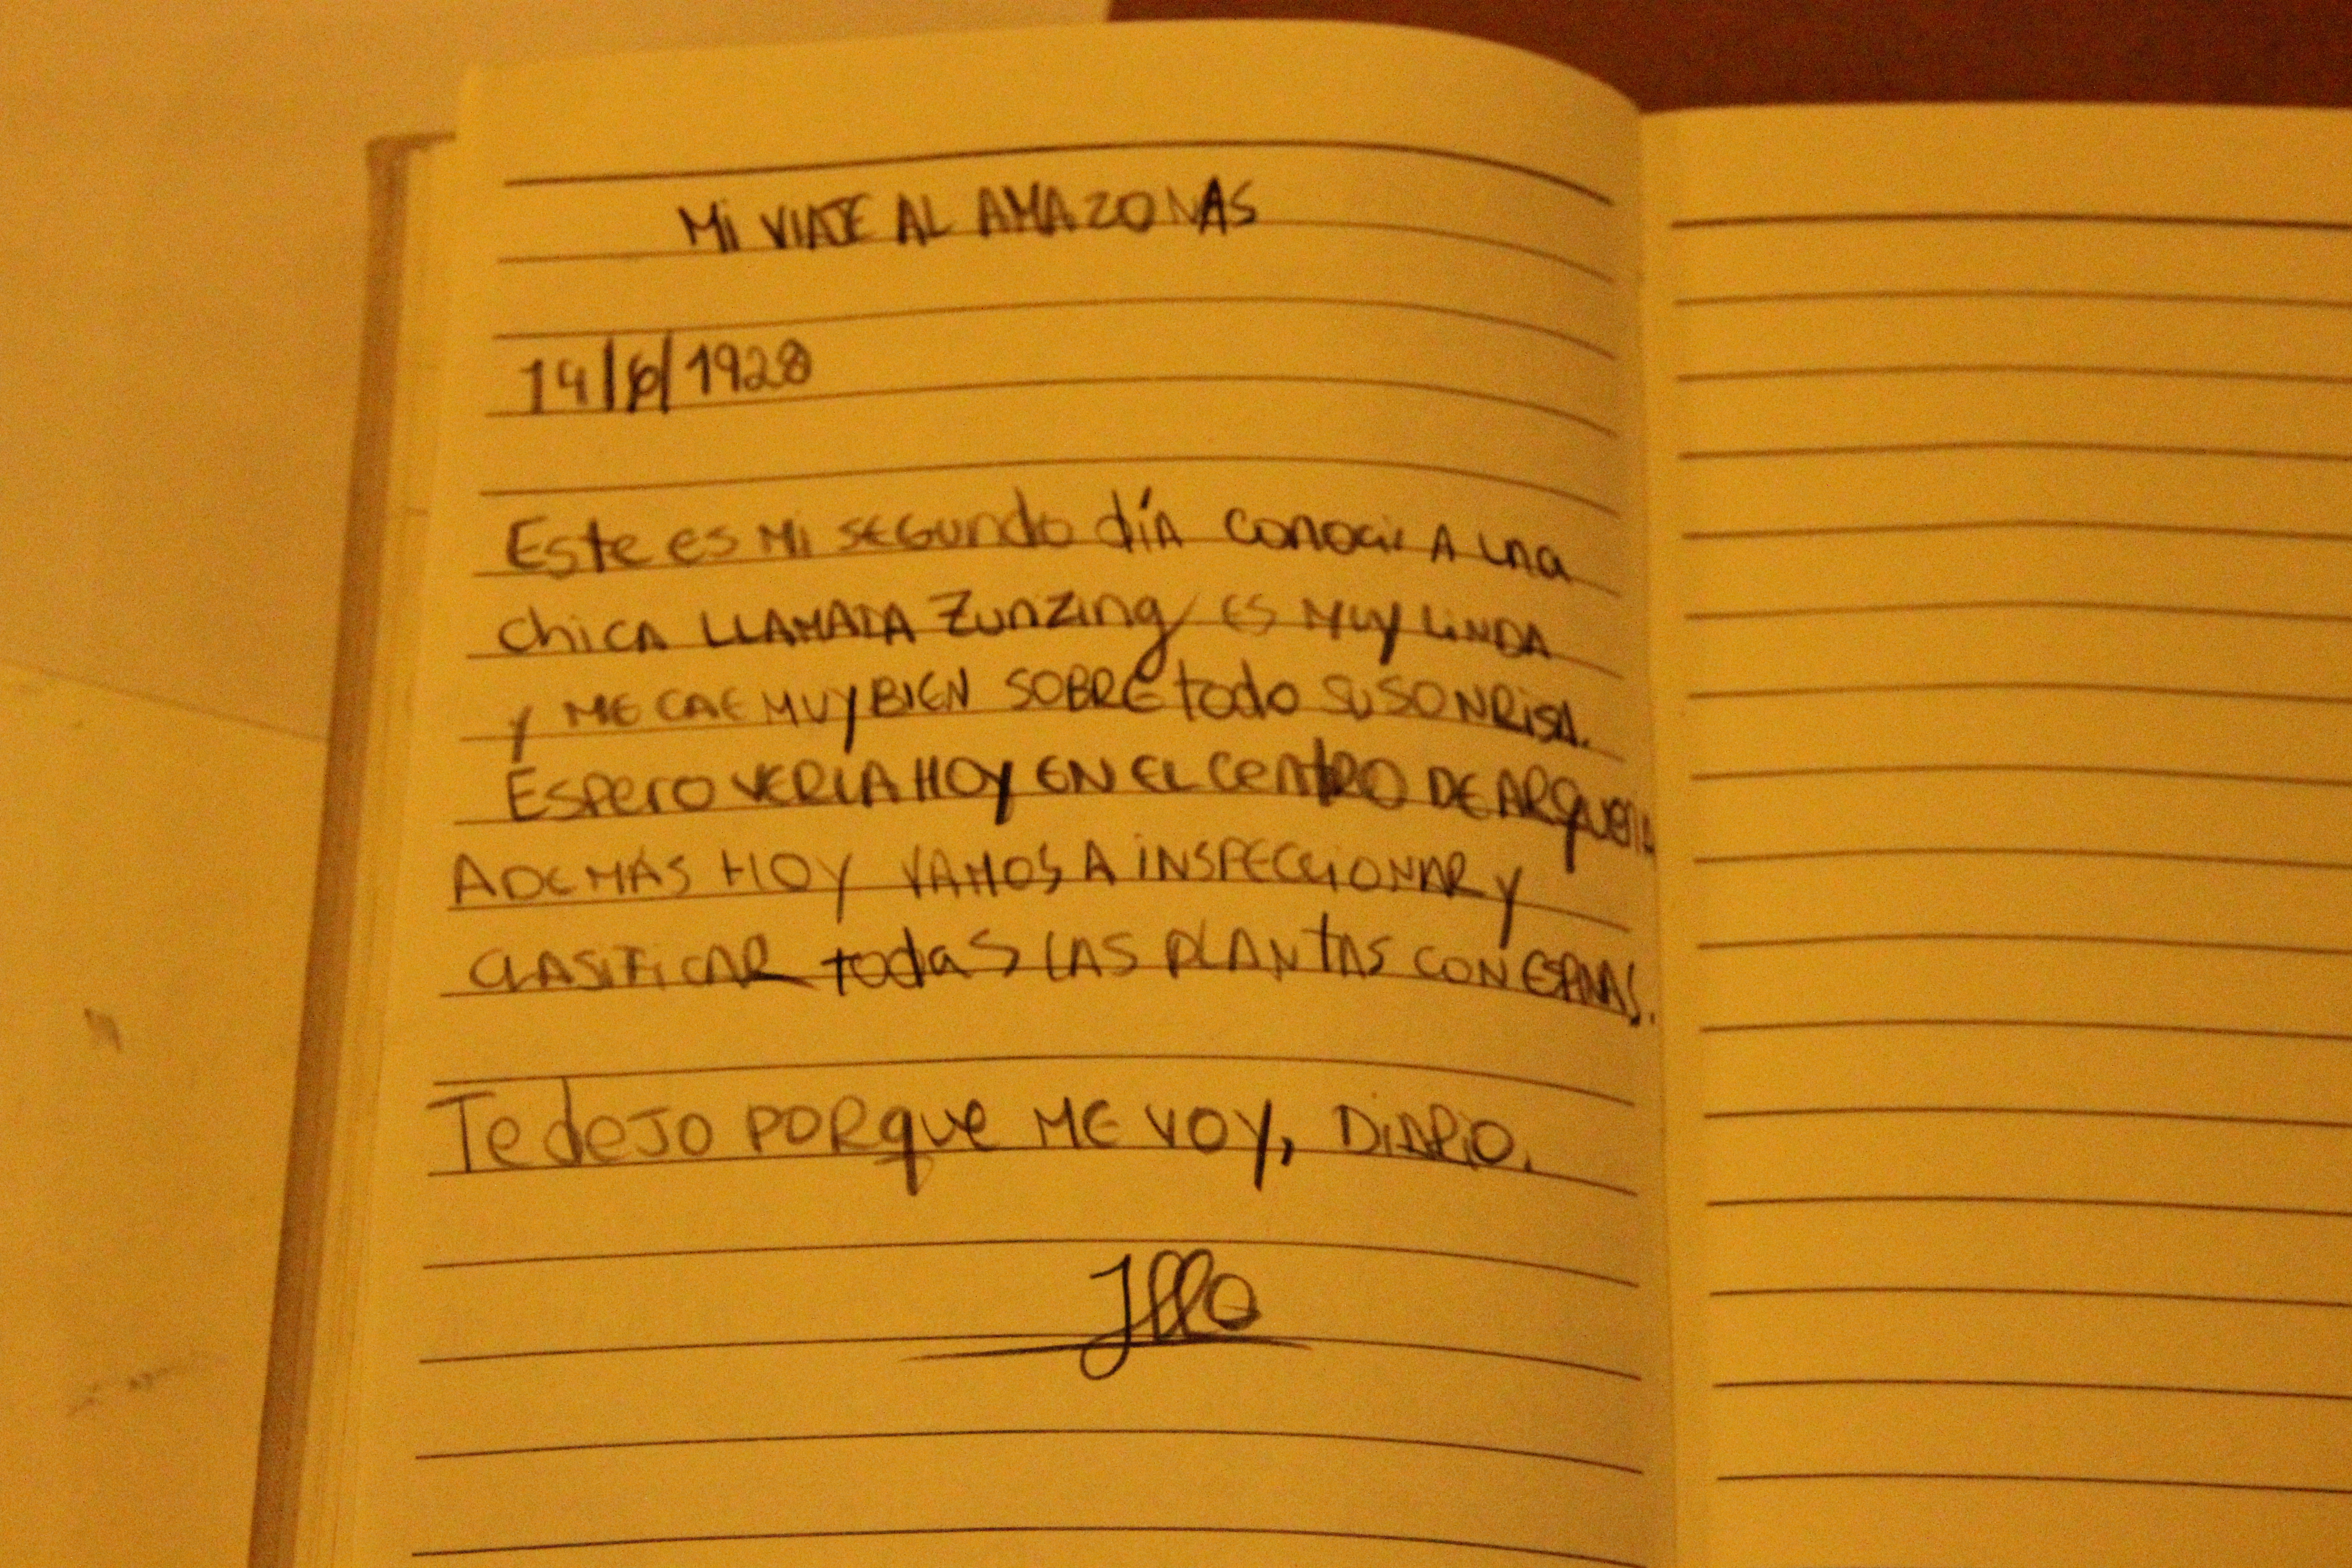 Mi VIAJE AL AMAZONAS
14/6/1928
Este es Mi SEGundo día conocí A una
chicA LLAMADA Zunzing ES MUY LiNDA
y ME CAE MUY BIEN SOBRE todo SU SONRISA.
Espero VERLA HOY EN EL CentRO DE
ADEMÁS HOY VAMOS A iNSPECCIONAR y
CLASIFICAR todaS LAS PLANTAS CON
Te deJo PORque ME VOY, DiARiO.